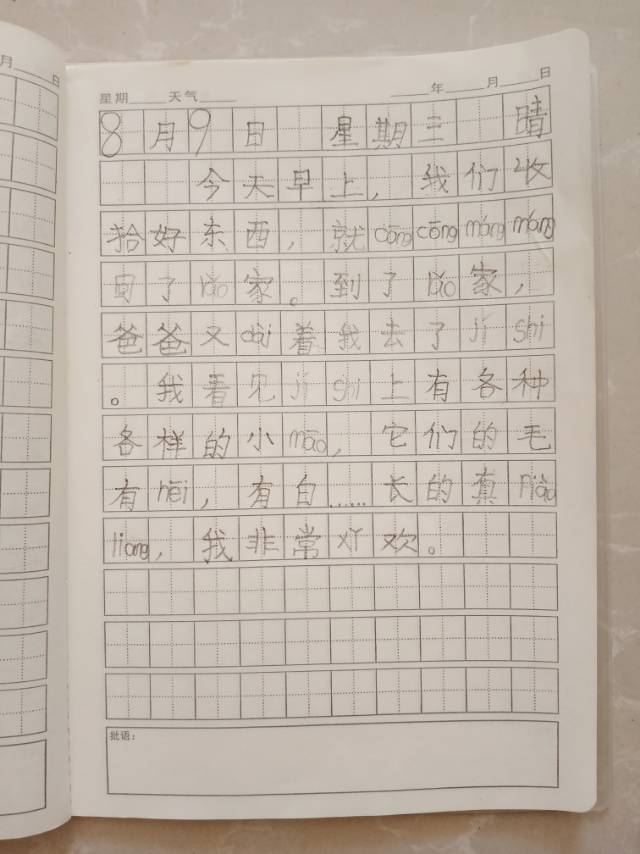 月 日
星期 天气 年 月 日
8月9日 星期三 晴
今天早上，我们收
拾好东西，就cōng cōng máng máng
回了lǎo家。到了lǎo家，
爸爸又dài着我去了jí shì
。我看见jí shì上有各种
各样的小māo，它们的毛
有hēi，有白……长的真piào
liang，我非常xǐ欢。
批语：